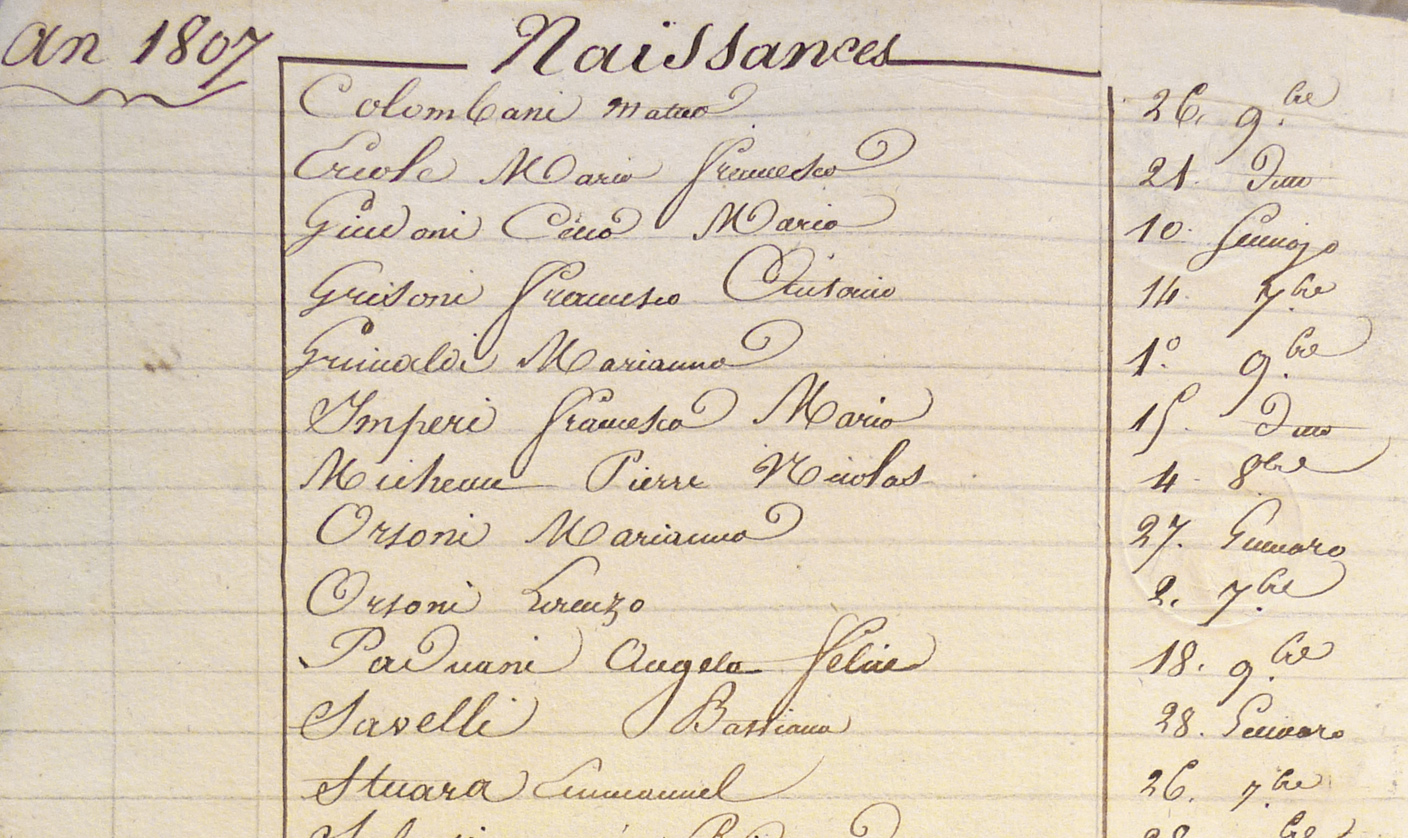 an 1807 Naïssances
Colombani Matteo 26. 9.bre
Ercole Maria Francesca 21. Ditto
Giudoni Maria 10. Gennajo
Grisoni Francesco Antonio 14. 7bre
Grimaldi Marianna 1º. 9.bre
Imperi Francesca Maria 15. Ditto
Micheau Pierre Nicolas 4. 8bre
Orsoni Marianna 27. Gennaro
Orsoni Lorenzo 2. 7.bre
Paduani Angela Felice 18. 9.bre
Savelli Bastiana 28. Gennaro
Stuara Emmanuel 26. 7.bre